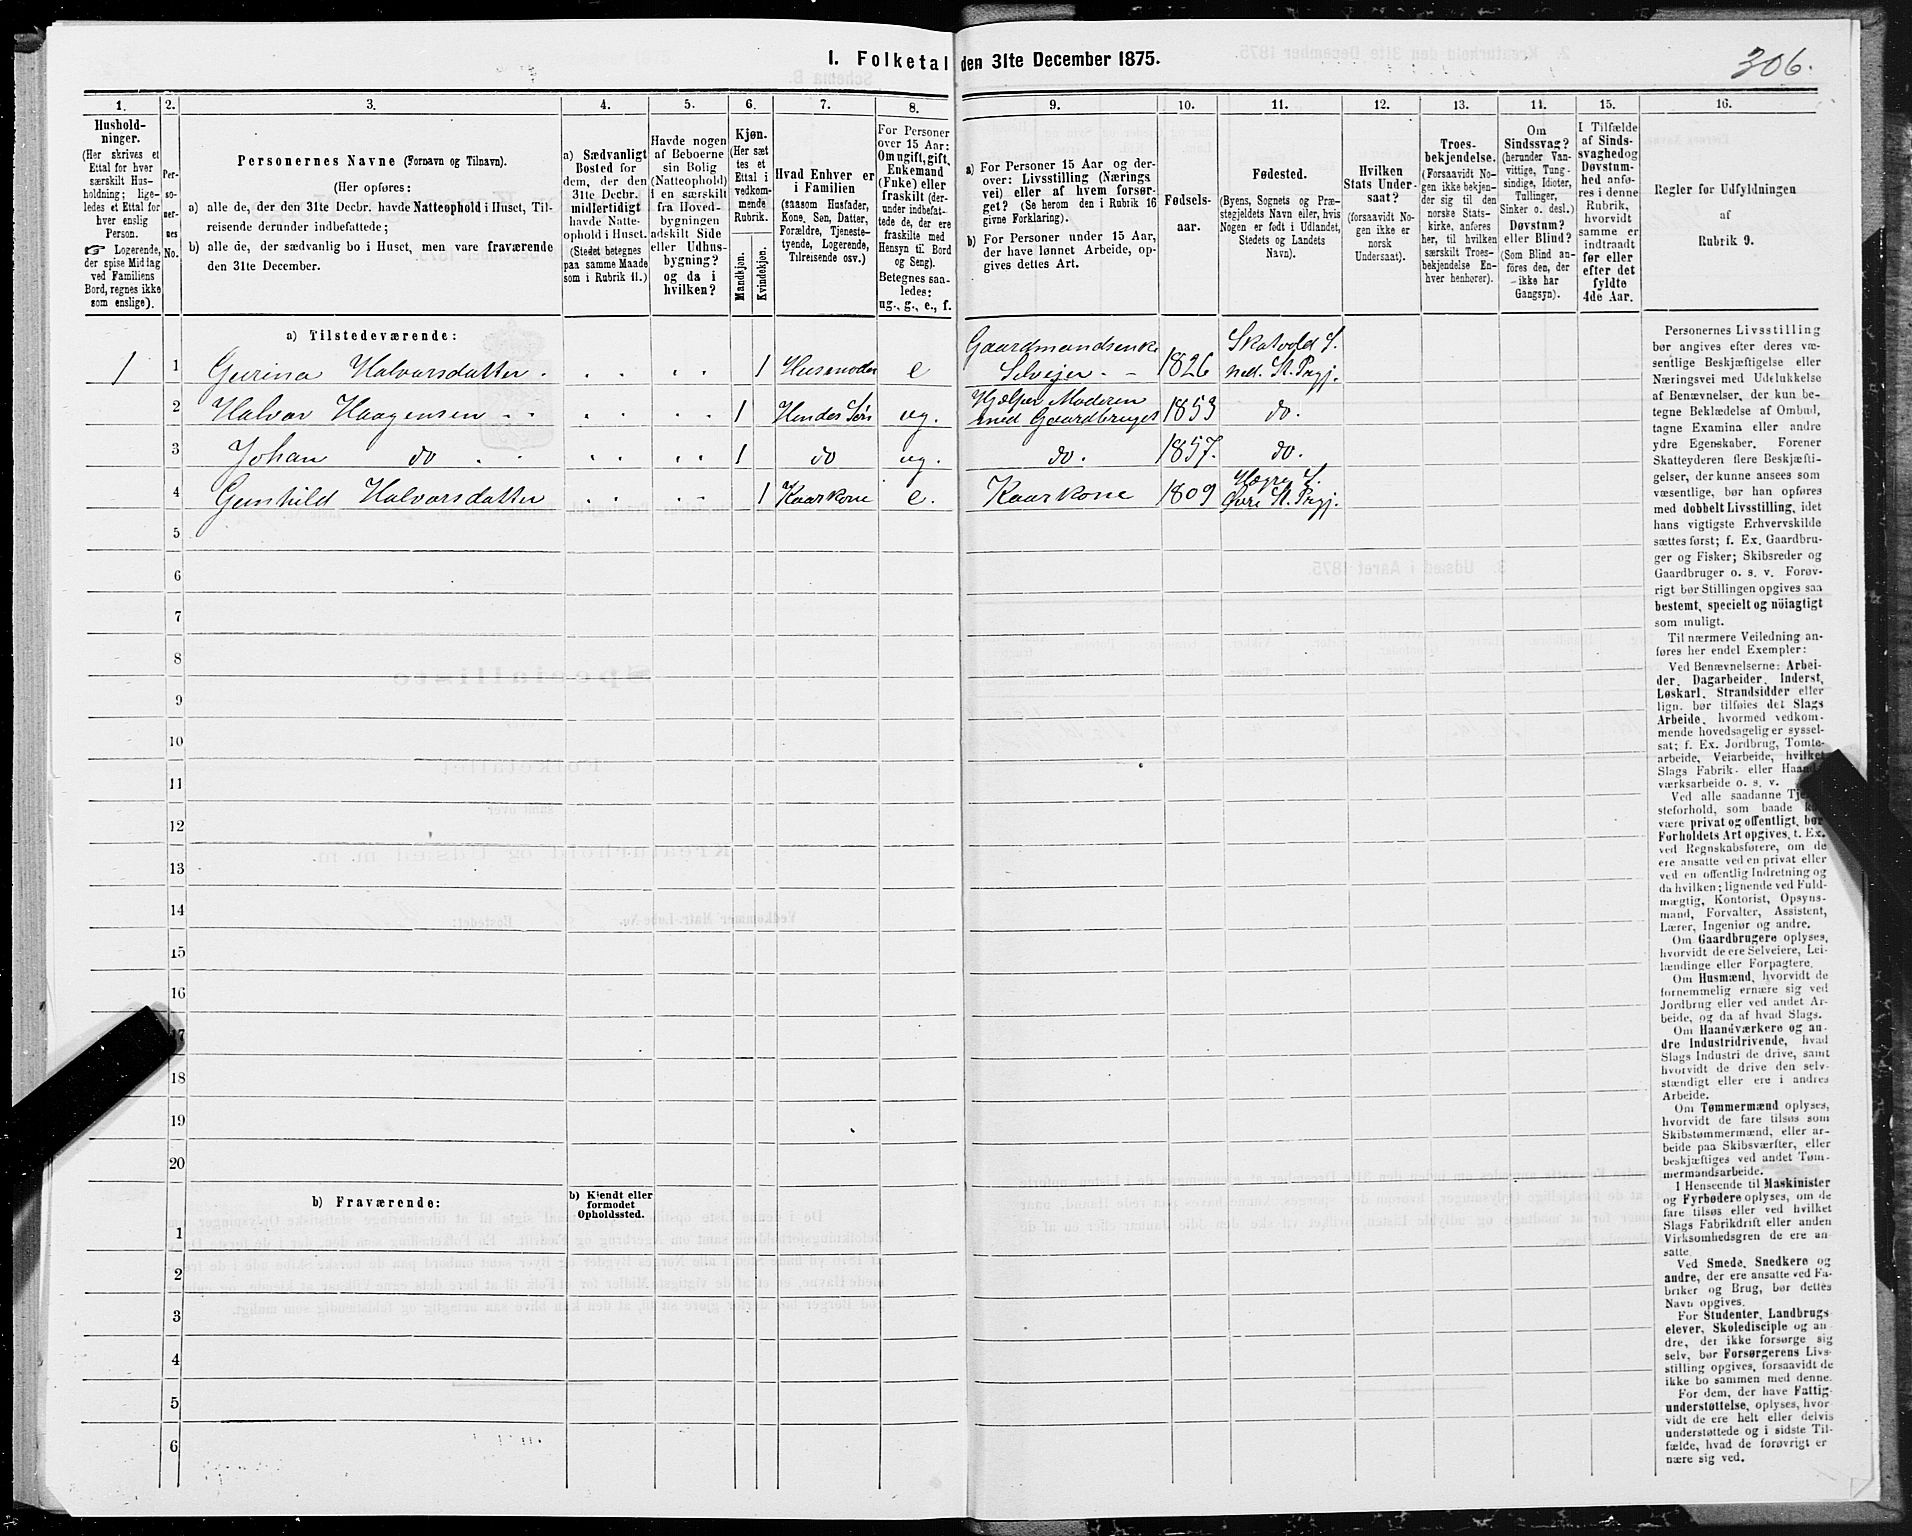 1. Folketal den 31te December 1875.
306.
1.
2.
3.
4.
5.
6.
7.
8.
9.
10.
11.
12.
13.
14.
15.
16.
Hushold-
ninger.
(Her skrives et
Ettal for hver
særskilt Hus-
holdning; lige-
ledes et Ettal for
hver enslig
Person.
☞ Logerende,
der spise Middag
ved Familiens
Bord, regnes ikke
som enslige).
Per-
so-
ner-
nes
No.
Personernes Navne (Fornavn og Tilnavn).
(Her opføres:
a) alle de, der den 31te Decbr. havde Natteophold i Huset, Til-
reisende derunder indbefattede;
b) alle de, der sædvanlig bo i Huset, men vare fraværende
den 31te December.
a) Sædvanligt
Bosted for
dem, der den
31te Decbr.
midlertidigt
havde Natte-
ophold i Huset.
(Stedet betegnes
paa samme Maade
som i Rubrik 11.)
Havde nogen
af Beboerne
sin Bolig
(Natteophold)
i en særskilt
fra Hoved-
bygningen
adskilt Side
eller Udhus-
bygning?
og da i
hvilken?
Kjøn.
(Her sæt
tes et
Ettal i
vedkom-
mende
Rubrik.
Mandkjøn.
Kvindekjøn.
Hvad Enhver er
i Familien
(saasom Husfader,
Kone, Søn, Datter,
Forældre, Tjeneste-
tyende, Logerende,
Tilreisende osv.)
For Personer
over 15 Aar:
Om ugift, gift,
Enkemand
(Enke) eller
fraskilt (der-
under indbefat-
tede de, der ere
fraskilte med
Hensyn til Bord
og Seng).
Betegnes saa-
ledes:
ug., g., e., f.
a) For Personer 15 Aar og der-
over: Livsstilling (Nærings
vei) eller af hvem forsør-
get? (Se herom den i Rubrik 16
givne Forklaring).
b) For Personer under 15 Aar,
der have lønnet Arbeide, op-
gives dettes Art.
Fødsels-
aar.
Fødested.
(Byens, Sognets og Præ-
stegjeldets Navn eller, hvis
Nogen er født i Udlandet,
Stedets og Landets
Navn).
Hvilken
Stats Under-
saat?
(forsaavidt No-
gen ikke er
norsk
Undersaat).
Troes-
bekjendelse.
(Forsaavidt No-
gen ikke bekjen-
der sig til den
norske Stats-
kirke, anføres
her, til hvilken
særskilt Troes-
bekjendelse En-
hver henhører).
Om
Sindssvag?
(herunder Van-
vittige, Tung-
sindige, Idioter,
Tullinger,
Sinker o. desl.)
Døvstum?
eller Blind?
(Som Blind an-
føres den, der
ikke har
Gangsyn).
I Tilfælde
af Sinds-
svaghed og
Døvstum-
hed anfø-
res i denne
Rubrik,
hvorvidt
samme er
indtraadt
før eller
efter det
fyldte
4de Aar.
Regler for Udfyldningen
af
Rubrik 9.
a) Tilstedeværende:
1 1 Gurina Halvorsdatter 1 Husmoder e Gaardmandsenke Selvejer 1826 Skatvold S. ned. St. Prgj.
2 Halvor Haagensen 1 Hendes Søn ug. Hjelper Moderen med Gaardbruget 1853 do.
3 Johan do 1 do ug. do. 1857. do.
4 Gunhild Halvorsdatter 1 Kaarkone e. Kaarkone 1809 Hegre S. Øvre St. Prgj.
5
6
7
8
9
10
11
12
13
14
15
16
17
18
19
20
b) Fraværende:
b) Kjendt eller
formodet
Opholdssted.
1
2
3
4
5
6
Personernes Livsstilling
bør angives efter deres væ-
sentlige Beskjæftigelse eller
Næringsvei med Udelukkelse
af Benævnelser, der kun be-
tegne Beklædelse af Ombud,
tagne Examina eller andre
ydre Egenskaber. Forener
Skatteyderen flere Beskjæfti-
gelser, der kunne ansees som
væsentlige, bør han opføres
med dobbelt Livsstilling, idet
hans vigtigste Erhvervskilde
sættes først; f. Ex. Gaardbru-
ger og Fisker; Skibsreder og
Gaardbruger o. s. v. Forøv-
rigt bør Stillingen opgives saa
bestemt, specielt og nöiagtigt
som muligt.
Til nærmere Veiledning an-
føres her endel Exempler:
Ved Benævnelserne: Arbei-
der, Dagarbeider, Inderst,
Løskarl, Strandsidder eller
lign. bør tilføies det Slags
Arbeide, hvormed vedkom-
mende hovedsagelig er syssel-
sat; f. Ex. Jordbrug, Tomte-
arbeide, Veiarbeide, hvilket
Slags Fabrik- eller Haand-
værksarbeide o. s. v.
Ved alle saadanne Tje-
steforhold, som baade
være privat og offentligt, bør
Forholdets Art opgives, t. Ex.
ved Regnskabsførere, om de
ere ansatte ved en privat eller
ved en offentlig Indretning og
da hvilken; lignende ved Fuld-
mægtig, Kontorist, Opsyns-
mand, Forvalter, Assistent,
Lærer, Ingeniør og andre.
Om Gaardbrugere oplyses,
hvorvidt de ere Selveiere, Lei-
lændinge eller Forpagtere.
Om Husmænd, hvorvidt de
fornemmelig ernære sig ved
Jordbrug eller ved andet Ar-
beide, og da af hvad Slags.
Om Haandværkere og an-
dre Industridrivende, hvad
Slags Industri de drive, samt
hvorvidt de drive den selv-
stændigt eller ere i andres
Arbeide.
Om Tømmermænd oplyses,
hvorvidt de fare tilsøs som
Skibstømmermænd, eller ar-
beide paa Skibsværfter, eller
beskjæftiges ved andet Tøm-
mermandsarbeide.
I Henseende til Maskinister
og Fyrbødere oplyses, om de
fare tilsøs eller ved hvilket
Slags Fabrikdrift eller anden
Virksomhedsgren de ere an-
satte.
Ved Smede, Snedkere og
andre, der ere ansatte ved Fa-
briker og Brug, bør dettes
Navn opgives.
For Studenter, Landbrugs-
elever, Skoledisciple og an-
dre, der ikke forsørge sig
selv, bør Forsørgerens Livs-
stilling opgives, forsaavidt de
ikke bo sammen med denne.
For dem, der have Fattig-
understøttelse, oplyses, hvor-
vidt de ere helt eller delvis
understøttede og i sidste Til-
fælde, hvad de forøvrigt er
nære sig ved.